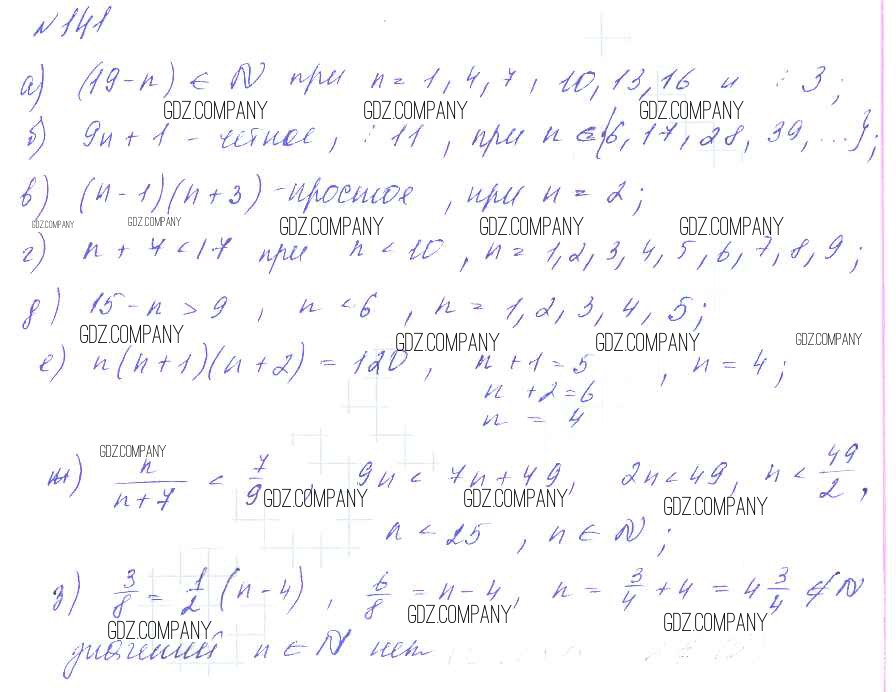 №141
а) (19-n) ∈ N при n = 1, 4, 7, 10, 13, 16 и ⋮ 3;
GDZ.COMPANY GDZ.COMPANY GDZ.COMPANY
б) 9n+1 - четное, ⋮ 11, при n ∈ {6, 17, 28, 39, ...};
в) (n-1)(n+3) - простое, при n = 2;
GDZ.COMPANY GDZ.COMPANY GDZ.COMPANY GDZ.COMPANY GDZ.COMPANY
г) n + 7 < 17 при n < 10, n = 1, 2, 3, 4, 5, 6, 7, 8, 9;
д) 15 - n > 9, n < 6, n = 1, 2, 3, 4, 5;
GDZ.COMPANY GDZ.COMPANY GDZ.COMPANY GDZ.COMPANY
е) n(n+1)(n+2) = 120, n+1=5, n = 4;
n+2=6
n = 4
GDZ.COMPANY
ж) n/(n+7) < 7/9, 9n < 7n+49, 2n<49, n < 49/2,
GDZ.COMPANY GDZ.COMPANY GDZ.COMPANY
n < 25, n ∈ N;
з) 3/8 = 1/2 (n-4), 6/8 = n-4, n = 3/4 + 4 = 4 3/4 ∉ N
GDZ.COMPANY GDZ.COMPANY GDZ.COMPANY
значений n ∈ N нет